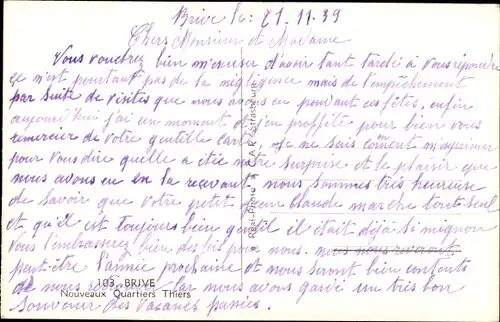 Brive le: 21.11.39
Chers Monsieur et Madame
Vous voudrez bien m'excuser d'avoir tant tardé à vous répondre
ce n'est pourtant pas de la négligence mais de l'empêchement
par suite de visites que nous avons eu pendant ces fêtes, enfin
aujourd'hui j'ai un moment et j'en profite pour bien vous
remercier de votre gentille carte je ne sais coment m'exprimer
pour vous dire quelle a étée notre surprise et le plaisir que
nous avons eu en la recevant, nous sommes très heureuse
de savoir que votre petit Jean Claude marche tout seul
et qu'il est toujours bien gentil il était déjà si mignon
Vous l'embrasserez bien des fois pour nous. nous nous reverrons
peut-être l'année prochaine et nous seront bien contents
de nous car nous avons gardé un très bon
103. BRIVE
Nouveaux Quartiers Thiers
souvenir des vacances passées.